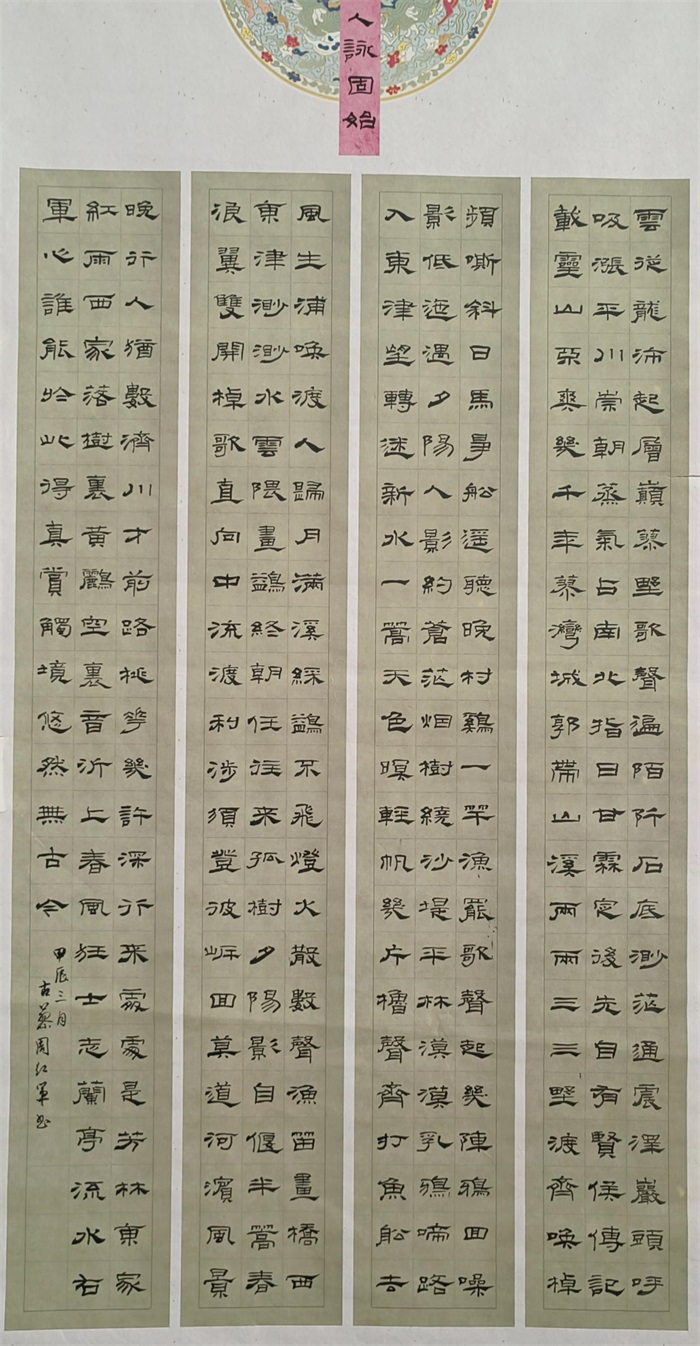 人詠固始
雲從龍沛起層巔蓼野歌聲遍陌阡石底渺茫通震澤巖頭呼
吸漲平川崇朝蒸氣占南北指日甘霖定後先自有賢侯傳記
載靈山爽幾千年蓼灣城郭帶山溪兩兩三三野渡齊喚棹
頻嘶斜日馬爭船遥聽晚村鷄一竿漁罷歌聲起幾陣鴉回噪
影低迤遇夕陽人影約蒼茫烟樹繞沙堤平林漠漠乳鴉啼路
入東津望轉迷新水一篙天色暝輕帆幾片櫓聲齊打魚船去
風生浦喚渡人歸月滿溪綵鷁不飛燈火散數聲漁笛畫橋西
東津渺渺水雲隈畫鷁終朝任往來孤樹夕陽影自偃半篙春
浪翼雙開棹歌直向中流渡利涉須登彼岸回莫道河濱風景
晚行人猶數濟川才前路桃花幾許深行來處處是芳林東家
紅雨西家落樹裏黃鸝空裏音沂上春風狂士志蘭亭流水右
軍心誰能於此得真賞觸境悠然無古今
甲辰三月
古蓼周红軍书